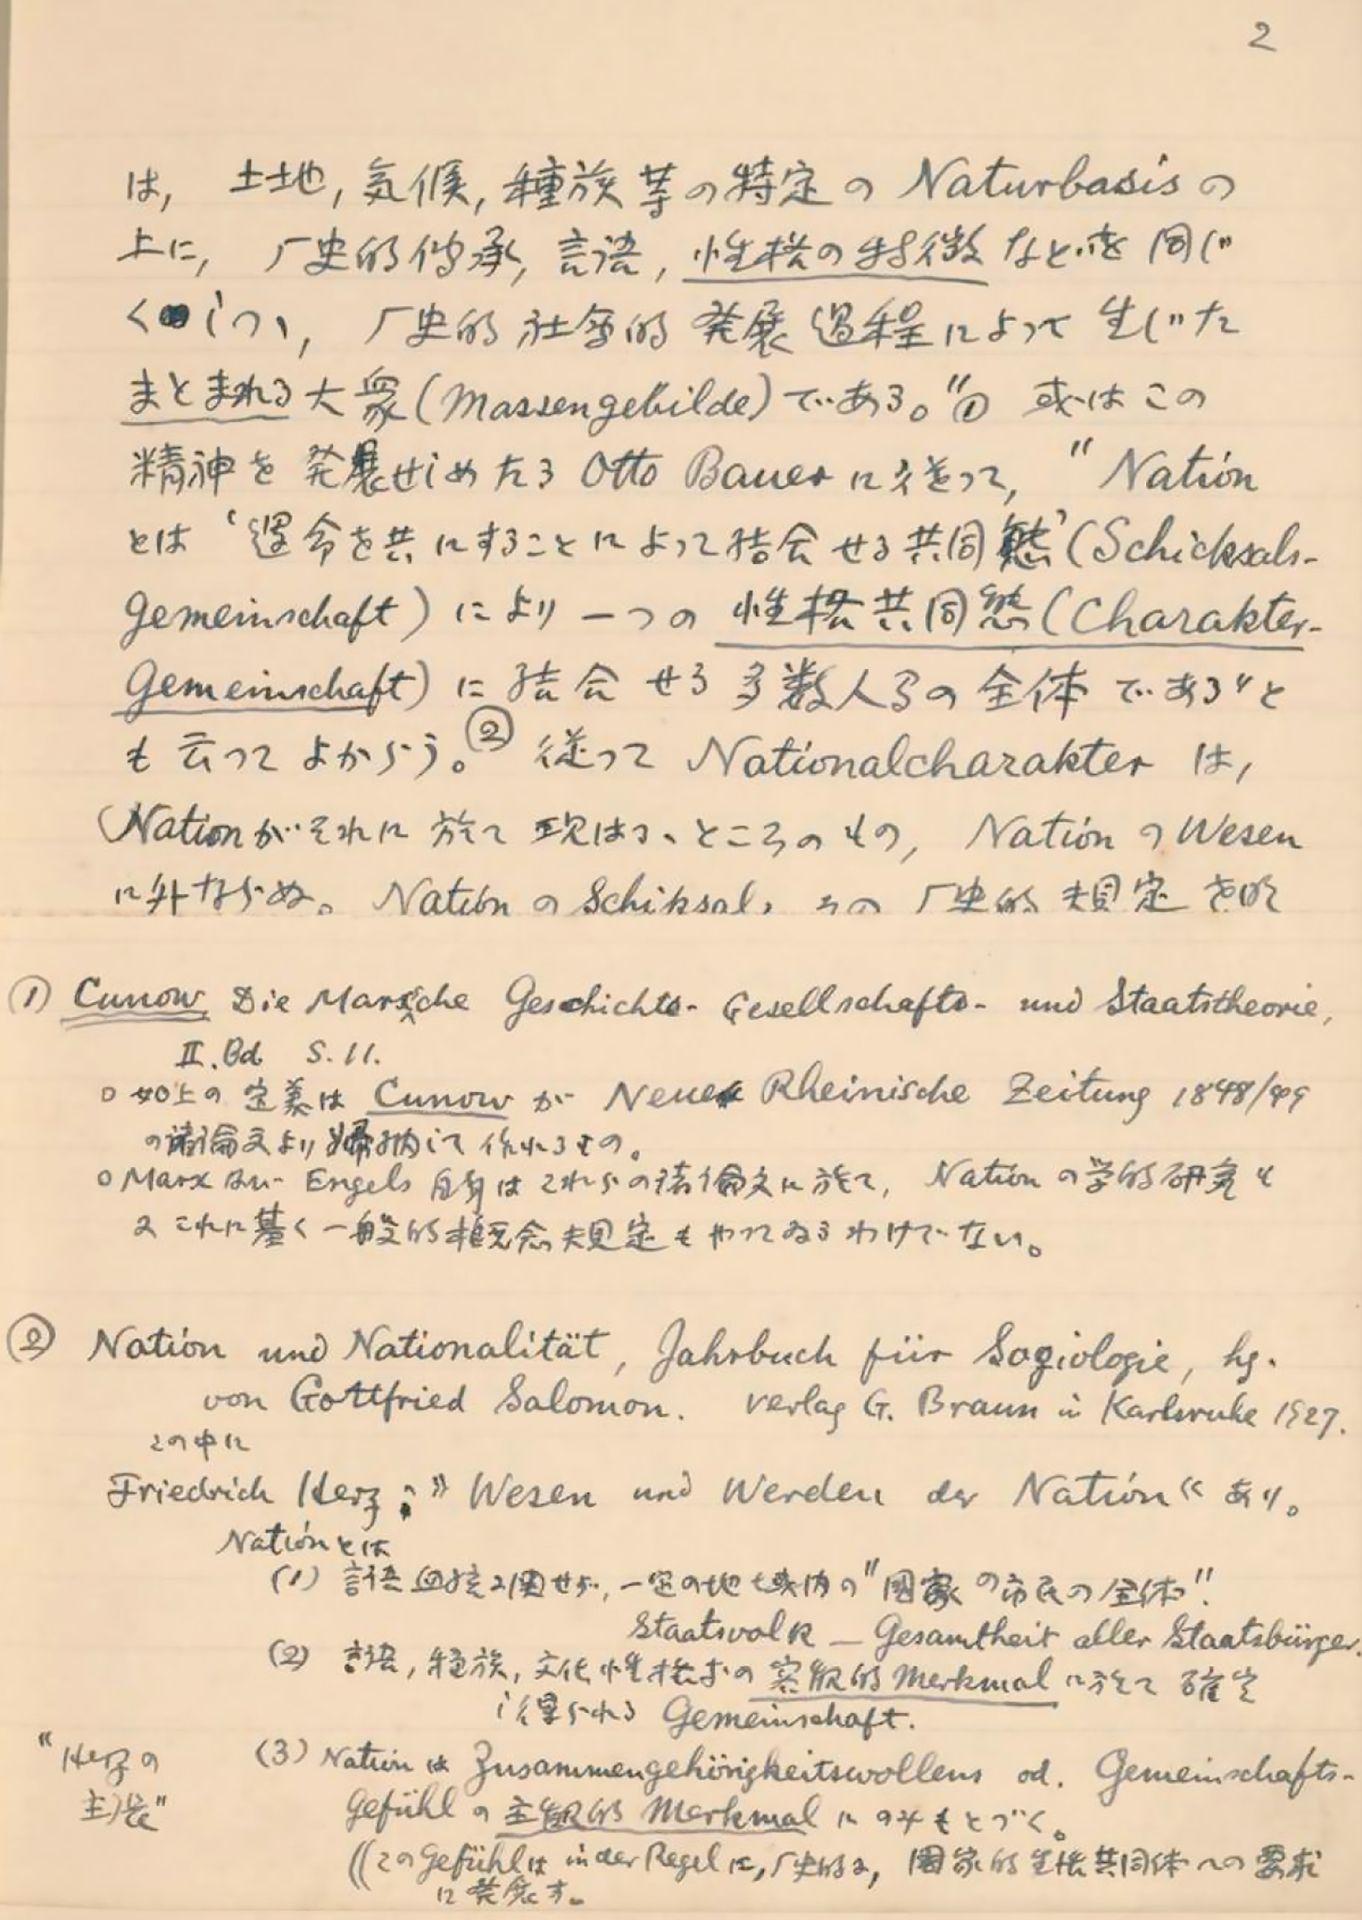 2
は, 土地, 気候, 種族等の特定の Naturbasis の
上に, 厂史的伝承, 言語, 性格の特徴などを同じ
くしつゝ, 厂史的社会的発展過程によって生じた
まとまれる大衆(Massengebilde)である。"① 或はこの
精神を発展せしめたる Otto Bauer に従って, "Nation
とは '運命を共にすることによって結合せる共同態'(Schicksals-
gemeinschaft)により一つの性格共同態(Charakter-
gemeinschaft)に結合せる多数人間の全体である"と
も云ってよからう。② 従って Nationalcharakter は,
Nationがそれに於て現はるゝところのもの, Nation の Wesen
に外ならぬ。 Nation の Schiksal, その厂史的規定を明
① Cunow Die Marxsche Geschichts- Gesellschafts- und Staatstheorie,
II. Bd S. 11.
○ 如上の定義は Cunow が Neue Rheinische Zeitung 1848/49
の諸論文より帰納して作れるもの。
○ Marx 及 Engels 自身はこれらの諸論文に於て, Nation の学的研究も
又これに基く一般的概念規定もやってゐるわけでない。
② Nation und Nationalität, Jahrbuch für Soziologie, hg.
von Gottfried Salomon. Verlag G. Braun in Karlsruhe 1927.
この中に
Friedrich Herz: » Wesen und Werden der Nation« あり。
Nationとは
(1) 言語血族に関せず, 一定の地域内の"國家の市民の全体"
Staatsvolk — Gesamtheit aller Staatsbürger.
(2) 言語, 種族, 文化性格等の客観的 Merkmal に於て確定
し得られる Gemeinschaft.
"Herzの
主張"
(3) Nation は Zusammengehörigkeitswollens od. Gemeinschafts-
gefühl の主観的 Merkmal にのみもとづく。
((この Gefühl は in der Regel に, 厂史的に, 国家的生活共同体への要求
に発展す。